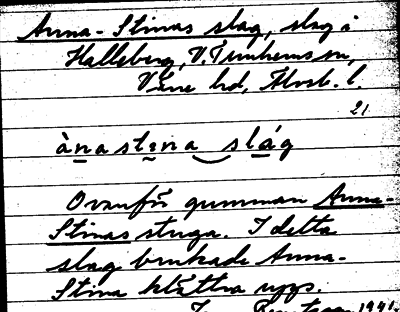 Anna-Stinas slag, slag å
Halleberg, V. Tunhems sn,
Väne hd, Älvsb. l.
21
ànastena slág
Ovanför gumman Anna-
Stinas stuga. I detta
slag brukade Anna-
Stina klättra upp.
1941